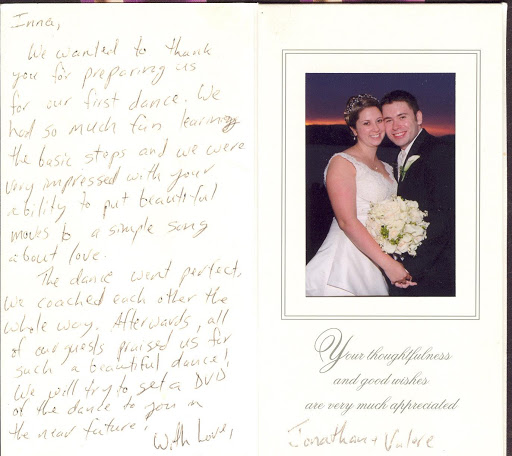 Inna,
We wanted to thank
you for preparing us
for our first dance. We
had so much fun learning
the basic steps and we were
very impressed with your
ability to put beautiful
moves to a simple song
about love.
The dance went perfect,
we coached each other the
whole way. Afterwards, all
of our guests praised us for
such a beautiful dance!
We will try to get a DVD
of the dance to you in
the near future!
With Love,
Your thoughtfulness
and good wishes
are very much appreciated
Jonathan + Valere